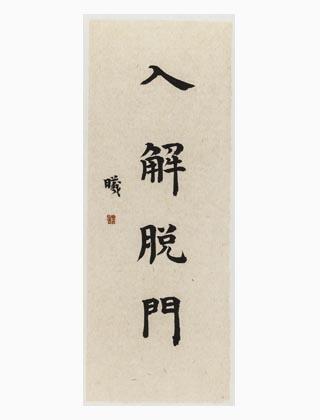 入解脱門
曦